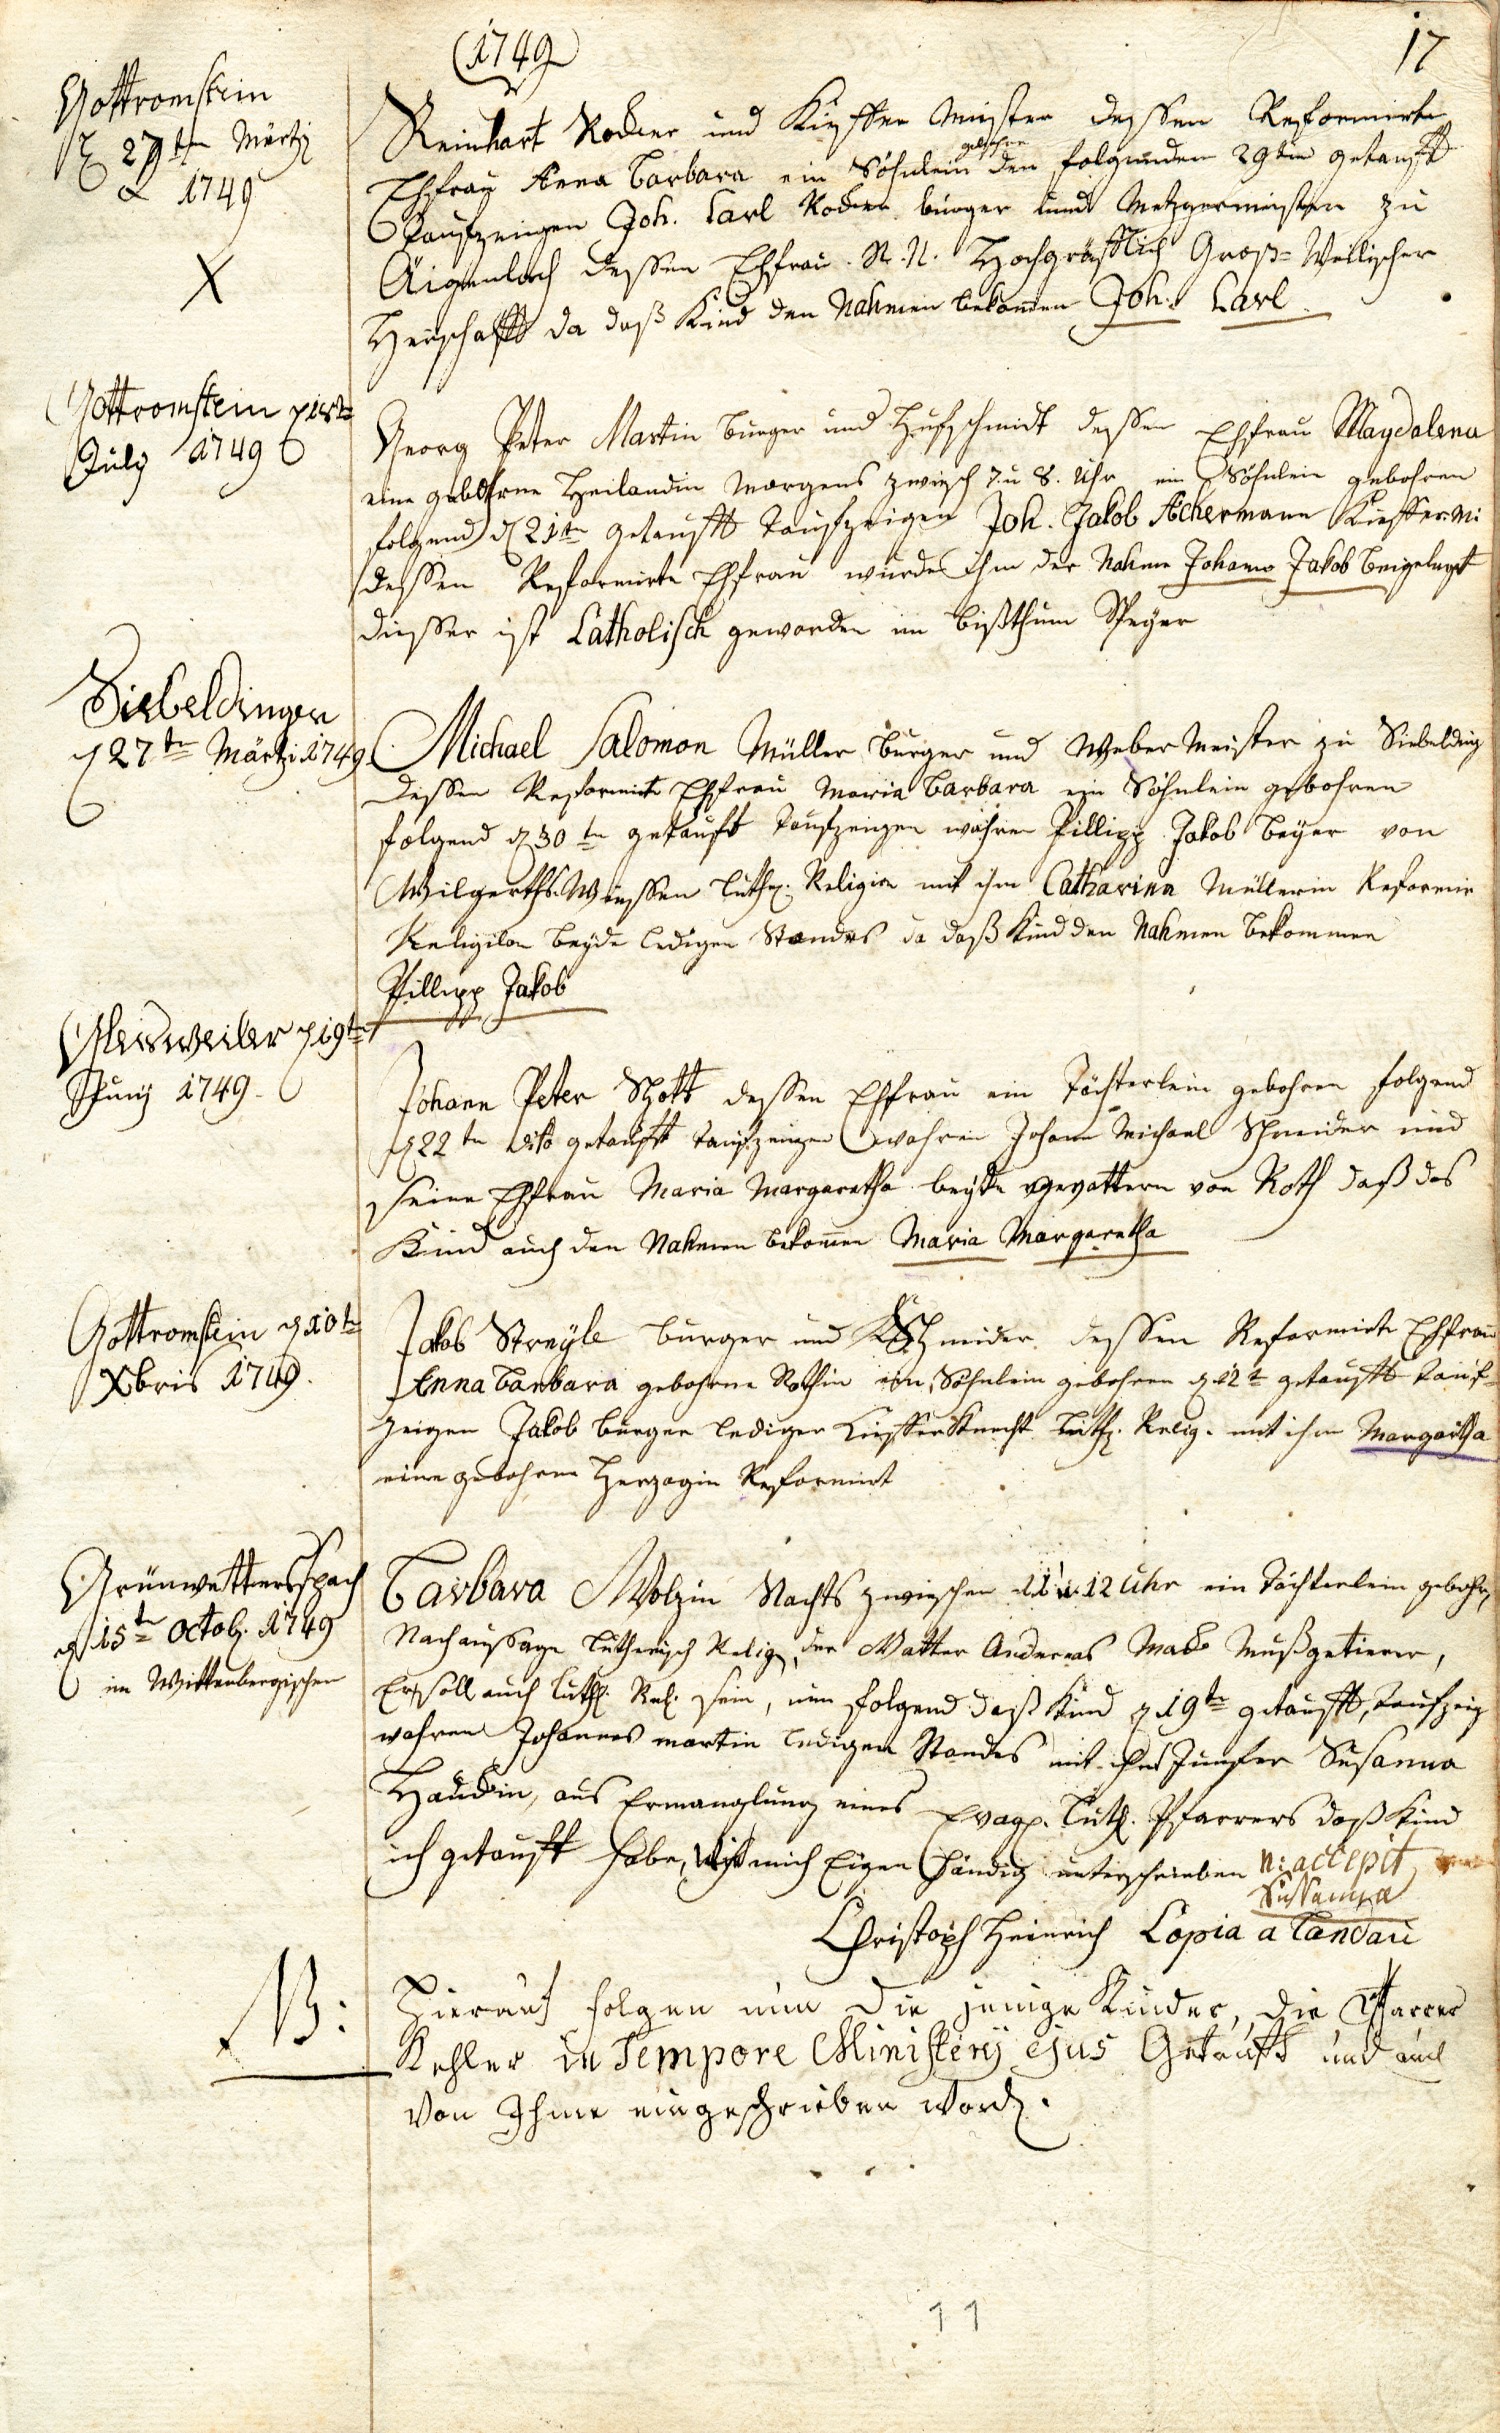 (1749)
17
Gottromstein
d 27ten Märtzj
1749
X
Reinhart Rocker und Kieffer Meister dessen Reformirte
gebohren
Ehfrau Anna Barbara ein Söhnlein den folgenden 29ten getaufft
Taufzeigen Joh. Carl Rocker burger und Metzgermeister zu
dessen Ehfrau N. N. Hochgräfflich
Herrschafft da daß Kind den Nahmen bekom̄en Joh. Carl.
Gottromstein
July 1749
Georg Peter Martin burger und Hufschmidt dessen Ehfrau Magdalena
eine gebohrne Heilandin Morgens zwisch 7. u 8. Uhr ein Söhnlein gebohren
folgend d 21ten getaufft Taufzeigen Joh. Jakob Ackermann Kieffer Mi
dessen Reformirte Ehfrau wurde ihm der Nahme Johann Jakob beigelegt
diesser ist Catholisch geworden im bißthum Speyer
Siebeldingen
d 27ten Märtzi 1749
Michael Salomon Müller burger und Weber Meister zu Siebelding
dessen Reformirte Ehfrau Maria Barbara ein Söhnlein gebohren
folgend d 30ten getauft Taufzeigen wahren Pillipp Jakob beyer von
Luthr. Religion mit ihm Catharina Müllerin Reformir
Religion beyde ledigen Standes da daß Kind den Nahmen bekommen
Pillipp Jakob
Gleisweiler d 19ten
Juny 1749
Johann Peter Schott dessen Ehfrau ein Töchterlein gebohren folgend
d 22ten dito getaufft Taufzeigen wahren Johann Michael Schneider und
seine Ehfrau Maria Margaretha beyde gevattern von Roth daß das
Kind auch den Nahmen bekom̄en Maria Margaretha
Gottromstein d 10ten
Xbris 1749.
Jakob Streyle burger und Schneider dessen Reformirte Ehfrau
Anna Barbara gebohrne Rothin ein Söhnlein gebohren d 12t getaufft Tauf-
Zeigen Jakob burger lediger Kiefferknecht Luth. Relig. mit ihm Margaritha
eine gebohrne Herzogin Reformirt
Grünwettersspach
d 15ten Octob. 1749
im Wittenbergischen
Barbara Wolzin Nachts zwischen 11 u. 12 Uhr ein Töchterlein gebohr
Nach aussage Lutherisch Relig, der Vatter Andereas Mußgetierer,
Er soll auch Luth. Rel. sein, nun folgend daß Kind d 19ten getaufft, Taufzeig
wahren Johannes Martin ledigen Standes mit ihm Junfer Susanna
Haudin, aus Ermanglung eines Evagp. Luth. Pfarrers daß Kind
ich getaufft habe, mich Eigen händig unterschrieben N: accepit
Sussanna
Christoph Heinrich Copia a Landau
NB:
Hierauf folgen nun die jenige Kinder, die Pfarrer
Kehler in Tempore Ministerij ejus Getaufft und auch
von Ihme eingeschrieben word.
11